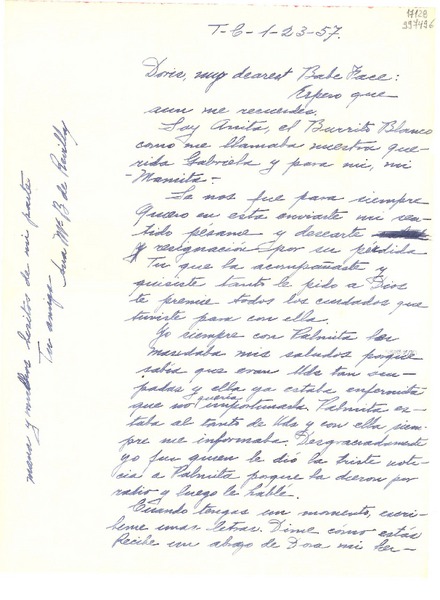 17128
997496
T-C-1-23-57.
Doris, my dearest Babe Face:
Espero que
aun me recuerdes.
Soy Anita, el Burrito Blanco
como me llamaba nuestra que-
rida Gabriela y para mi, mi
-Mamita-
Se nos fue para siempre
Quiero en esta enviarte mi sen-
tido pesame y desearte
y resignación por su perdida
Tu que la acompañaste y
quisiste tanto le pido a Dios
te premie todos los cuidados que
tuviste para con ella.
Yo siempre con Palmita les
mandaba mis saludos porque
sabía que eran Uds tan ocu-
padas y ella ya estaba enfermita
que no quería importunarla. Palmita es-
taba al tanto de Uds y con ella siem-
pre me informaba. Desgraciadamente
yo fui quien le dió la triste noti-
cia a Palmita porque la dieron por
radio y luego le hablé.
Cuando tengas un momento, escri-
beme unas letras. Dime cómo estás
Recibe un abrazo de Dora mi her-
mana y muchos besitos de mi parte
Tu amiga
Ana Ma B. de